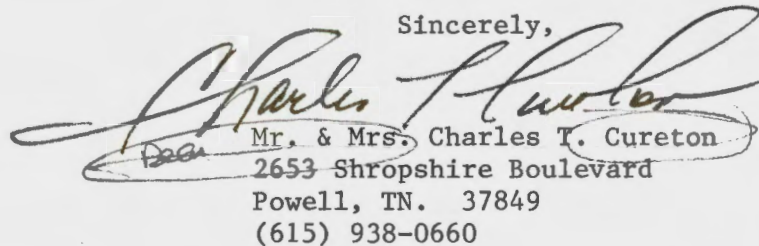 Sincerely,
Charles T Cureton
Mr. & Mrs. Charles T. Cureton
Dear
2653 Shropshire Boulevard
Powell, TN. 37849
(615) 938-0660